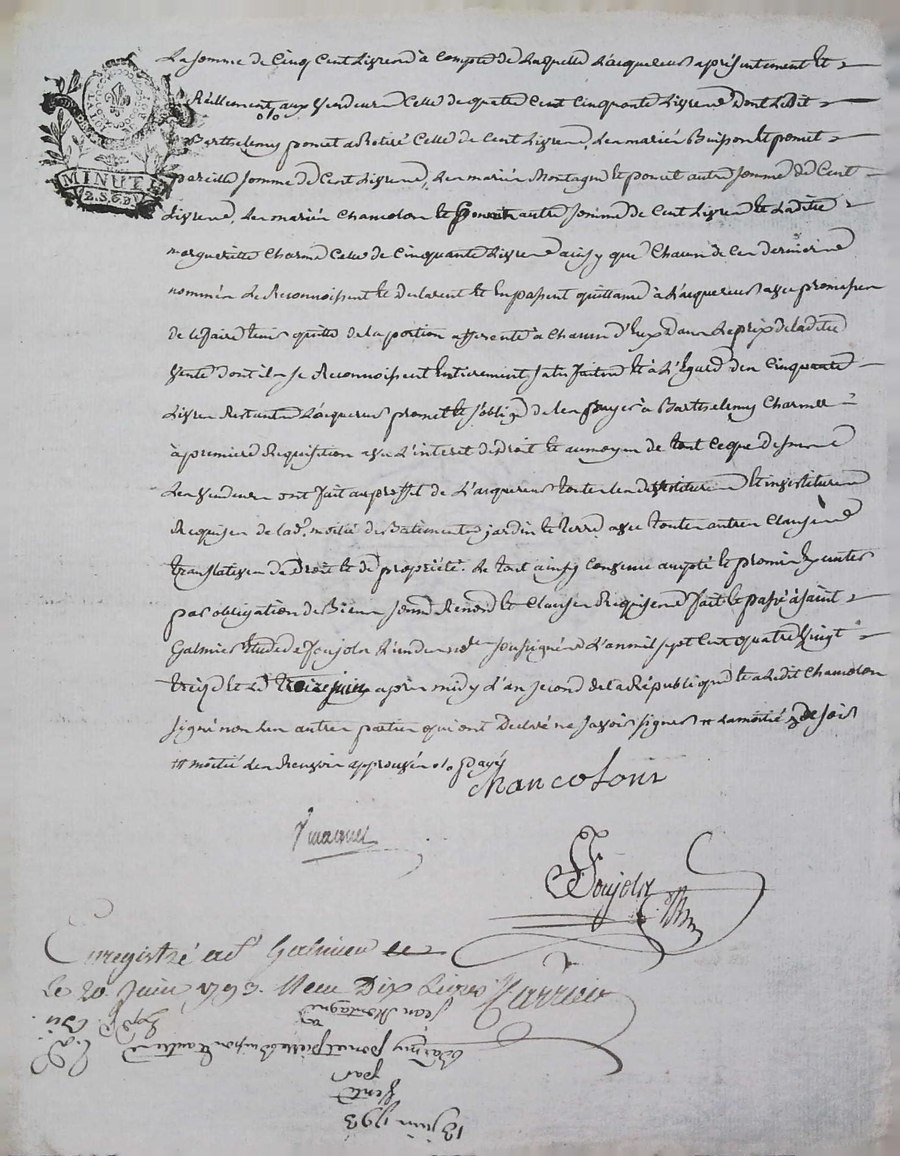 La somme de Cinq Cent Livres à compte de Laquelle L'acquereur a présentement et
Réellement aux Vendeurs Celle de quatre Cent Cinquante Livres Dont Ledit
Barthelemy poncet a Retiré Celle de Cent Livres, Les mariés Buisson et poncet
pareille somme de Cent Livres, Les mariés Montagne et poncet autre somme de Cent
Livres, Les mariés Chancolon et poncet autre somme de Cent Livres et Ladite
marguerite Charme Celle de Cinquante Livres ainsy que Chacun de Ces derniers
nommés Le Reconnoissent et Declarent et En passent quittance à L'acquereur avec promesse
de le faire tenir quitte de la portion afferente à Chacun d'Eux dans Le prix de ladite
Vente dont ils se Reconnoissent Entierement satisfaits et à L'Egard des Cinquante
Livres Restantes L'acquereur promet et s'oblige de les payer à Barthelemy Charme
à premiere Requisition avec L'interet de Droit et au moyen de tout Ce que Dessus
Les Vendeurs ont fait au proffit de L'acquereur toutes Les devetitures et investitures
Requises de lad. moitié de Batiments, jardin et terre avec toutes autres Clauses
translatives de Droit et de propriété. Le tout ainsy Convenu accepté et promis Executer
par obligation de Biens soumis Renond et Clauses Requises fait et passé à saint
Galmier Etude de Foujols L'un des not.res soussignés L'an mil sept Cent quatre Vingt
treize et Le treize juin après midy L'an second de la République et a Ledit Chancolon
signé non Les autres parties qui ont Declaré ne savoir signer # La moitié de soir
# moitié des Renvoir approuvés o/o payé
Chancolon
Foujols
Enregistré a S.t Galmier le
le 20 Juin 1793. Reçu Dix Livres
13 juin 1793
Vente
par
Barmy poncet pierre Buisson et autres
a
Jean Montagne